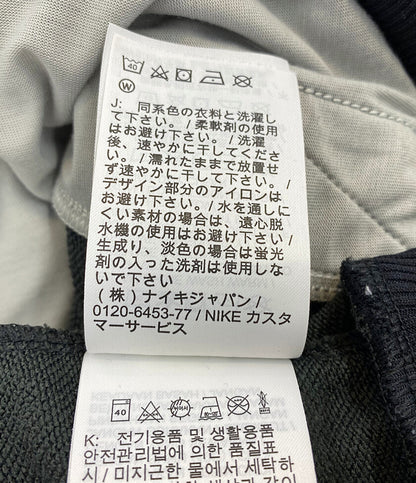 40
W
J: 同系色の衣料と洗濯し
て下さい。/ 柔軟剤の使用
はお避け下さい。/ 洗濯
後、速やかに干してくださ
い。/ 濡れたままで放置せ
ず速やかに干して下さい/
デザイン部分のアイロンは
お避け下さい/ 水を通しに
くい素材の場合は、遠心脱
水機の使用はお避け下さい/
生成り、淡色の場合は蛍光
剤の入った洗剤は使用しな
いで下さい
(株) ナイキジャパン/
0120-6453-77 / NIKE カスタ
マーサービス
40
K: 전기용품 및 생활용품
안전관리법에 의한 표
시 / 미지근한 물에서 세탁하